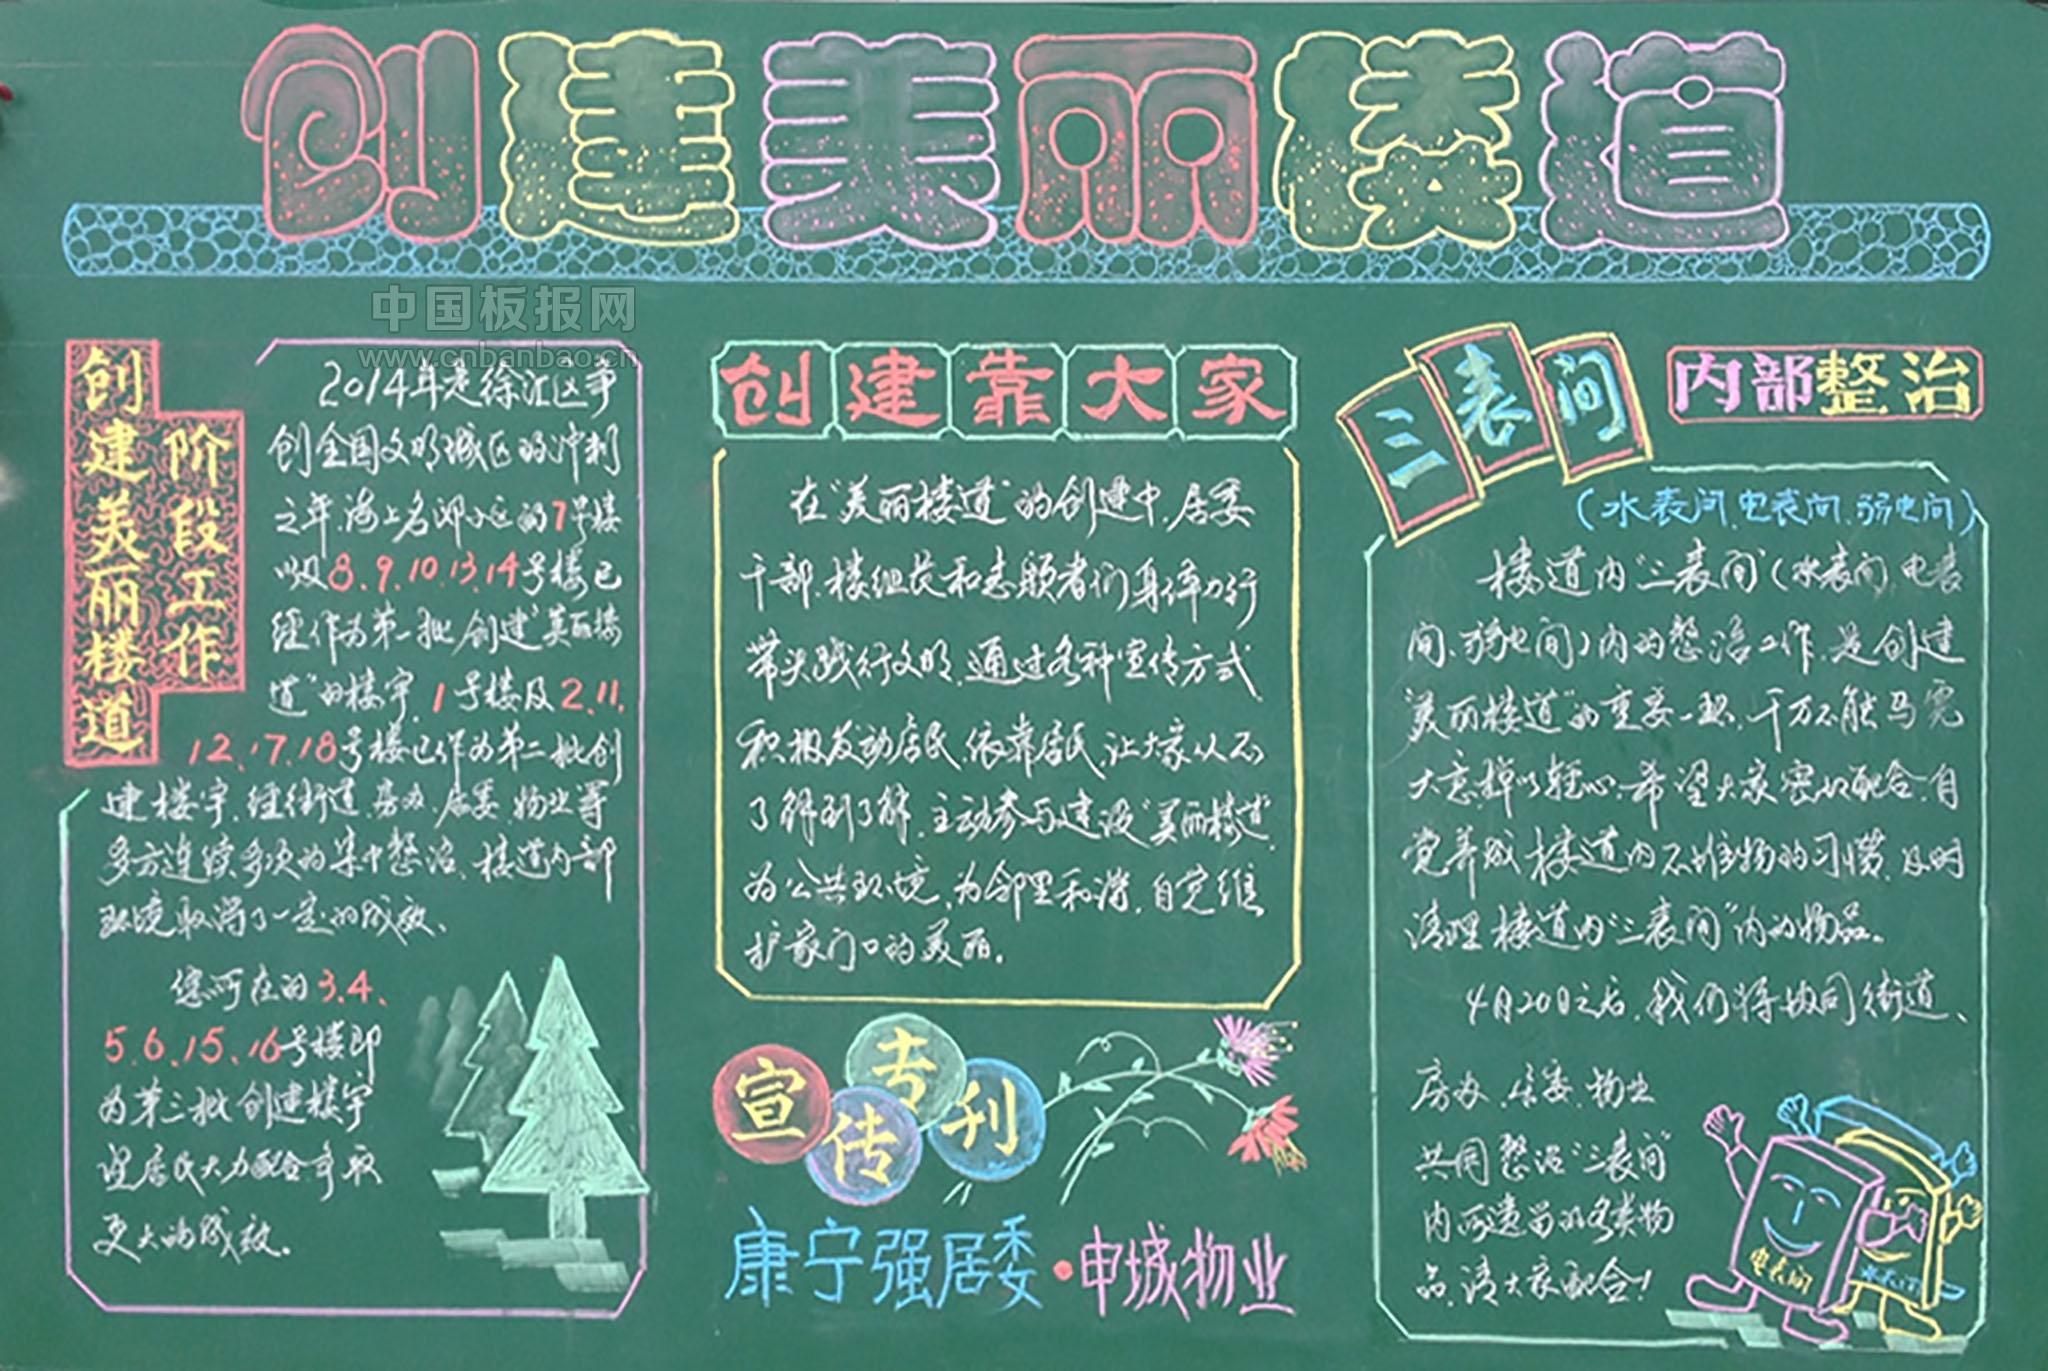 创建美丽楼道
中国板报网
www.cnbanbao.cn
创建美丽楼道
阶段工作
2014年是徐汇区争
创全国文明城区的冲刺
之年,海上名邸小区的7号楼
以及8.9.10.13.14号楼已
经作为第一批创建"美丽楼
道"的楼宇,1号楼及2.11.
12.17.18号楼已作为第二批创
建楼宇,经街道、房办、居委、物业等
多方连续多次的集中整治,楼道内部
环境取得了一定的成效、
您所在的3.4、
5.6.15.16号楼即
为第三批创建楼宇
望居民大力配合争取
更大的成效。
创建靠大家
在"美丽楼道"的创建中,居委
干部、楼组长和志愿者们身体力行
带头践行文明,通过各种宣传方式,
积极发动居民,依靠居民,让大家从不
了解到了解,主动参与建设"美丽楼道",
为公共环境,为邻里和谐,自觉维
护家门口的美丽。
宣传专刊
康宁强居委·申城物业
三表间
内部整治
(水表间、电表间、弱电间)
楼道内"三表间"(水表间、电表
间、弱电间)内的整治工作,是创建
"美丽楼道"的重要一环,千万不能马虎
大意,掉以轻心,希望大家密切配合,自
觉养成楼道内不堆物的习惯,及时
清理楼道内"三表间"内的物品。
4月20日之后,我们将协同街道、
房办、居委、物业
共同整治"三表间"
内所遗留的各类物
品,请大家配合!
电表间
水表间